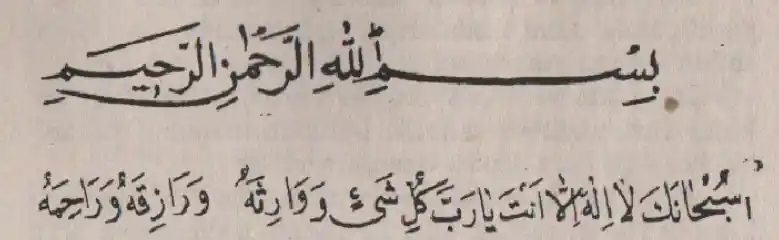 بِسْمِ اللّٰهِ الرَّحْمٰنِ الرَّحِيمِ
١ سُبْحَانَكَ لَا اِلٰهَ اِلَّا اَنْتَ يَا رَبَّ كُلِّ شَىْءٍ وَوَارِثَهُ وَرَازِقَهُ وَرَاحِمَهُ